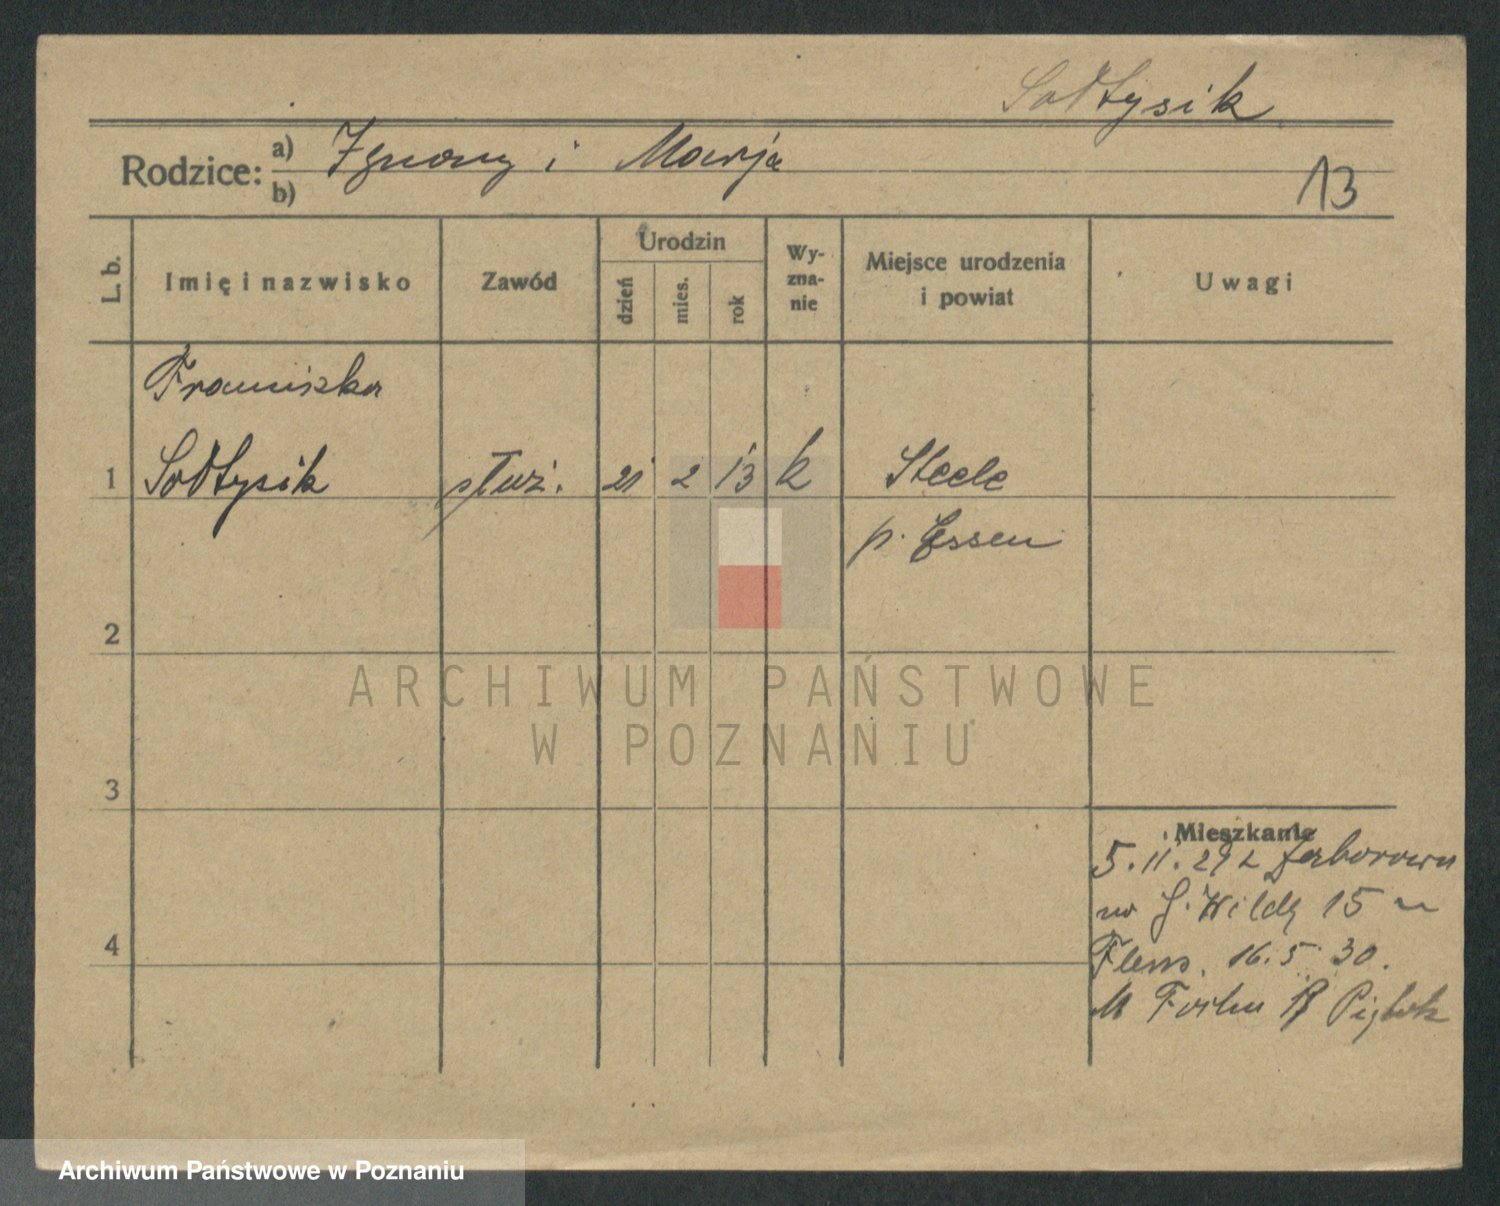 Sołtysik
Rodzice: a) Ignacy i Marja
b)
13
L. b.
Imię i nazwisko
Zawód
Urodzin
dzień
mies.
rok
Wy-
zna-
nie
Miejsce urodzenia
i powiat
Uwagi
Franciszka
1 Sołtysik służ. 21 2 13 k Steele
p. Essen
2
3
4
Mieszkanie
5.11.29 z Zaborowa
G. Wildy 15
16.5 30.
ARCHIWUM PAŃSTWOWE
W POZNANIU
Archiwum Państwowe w Poznaniu